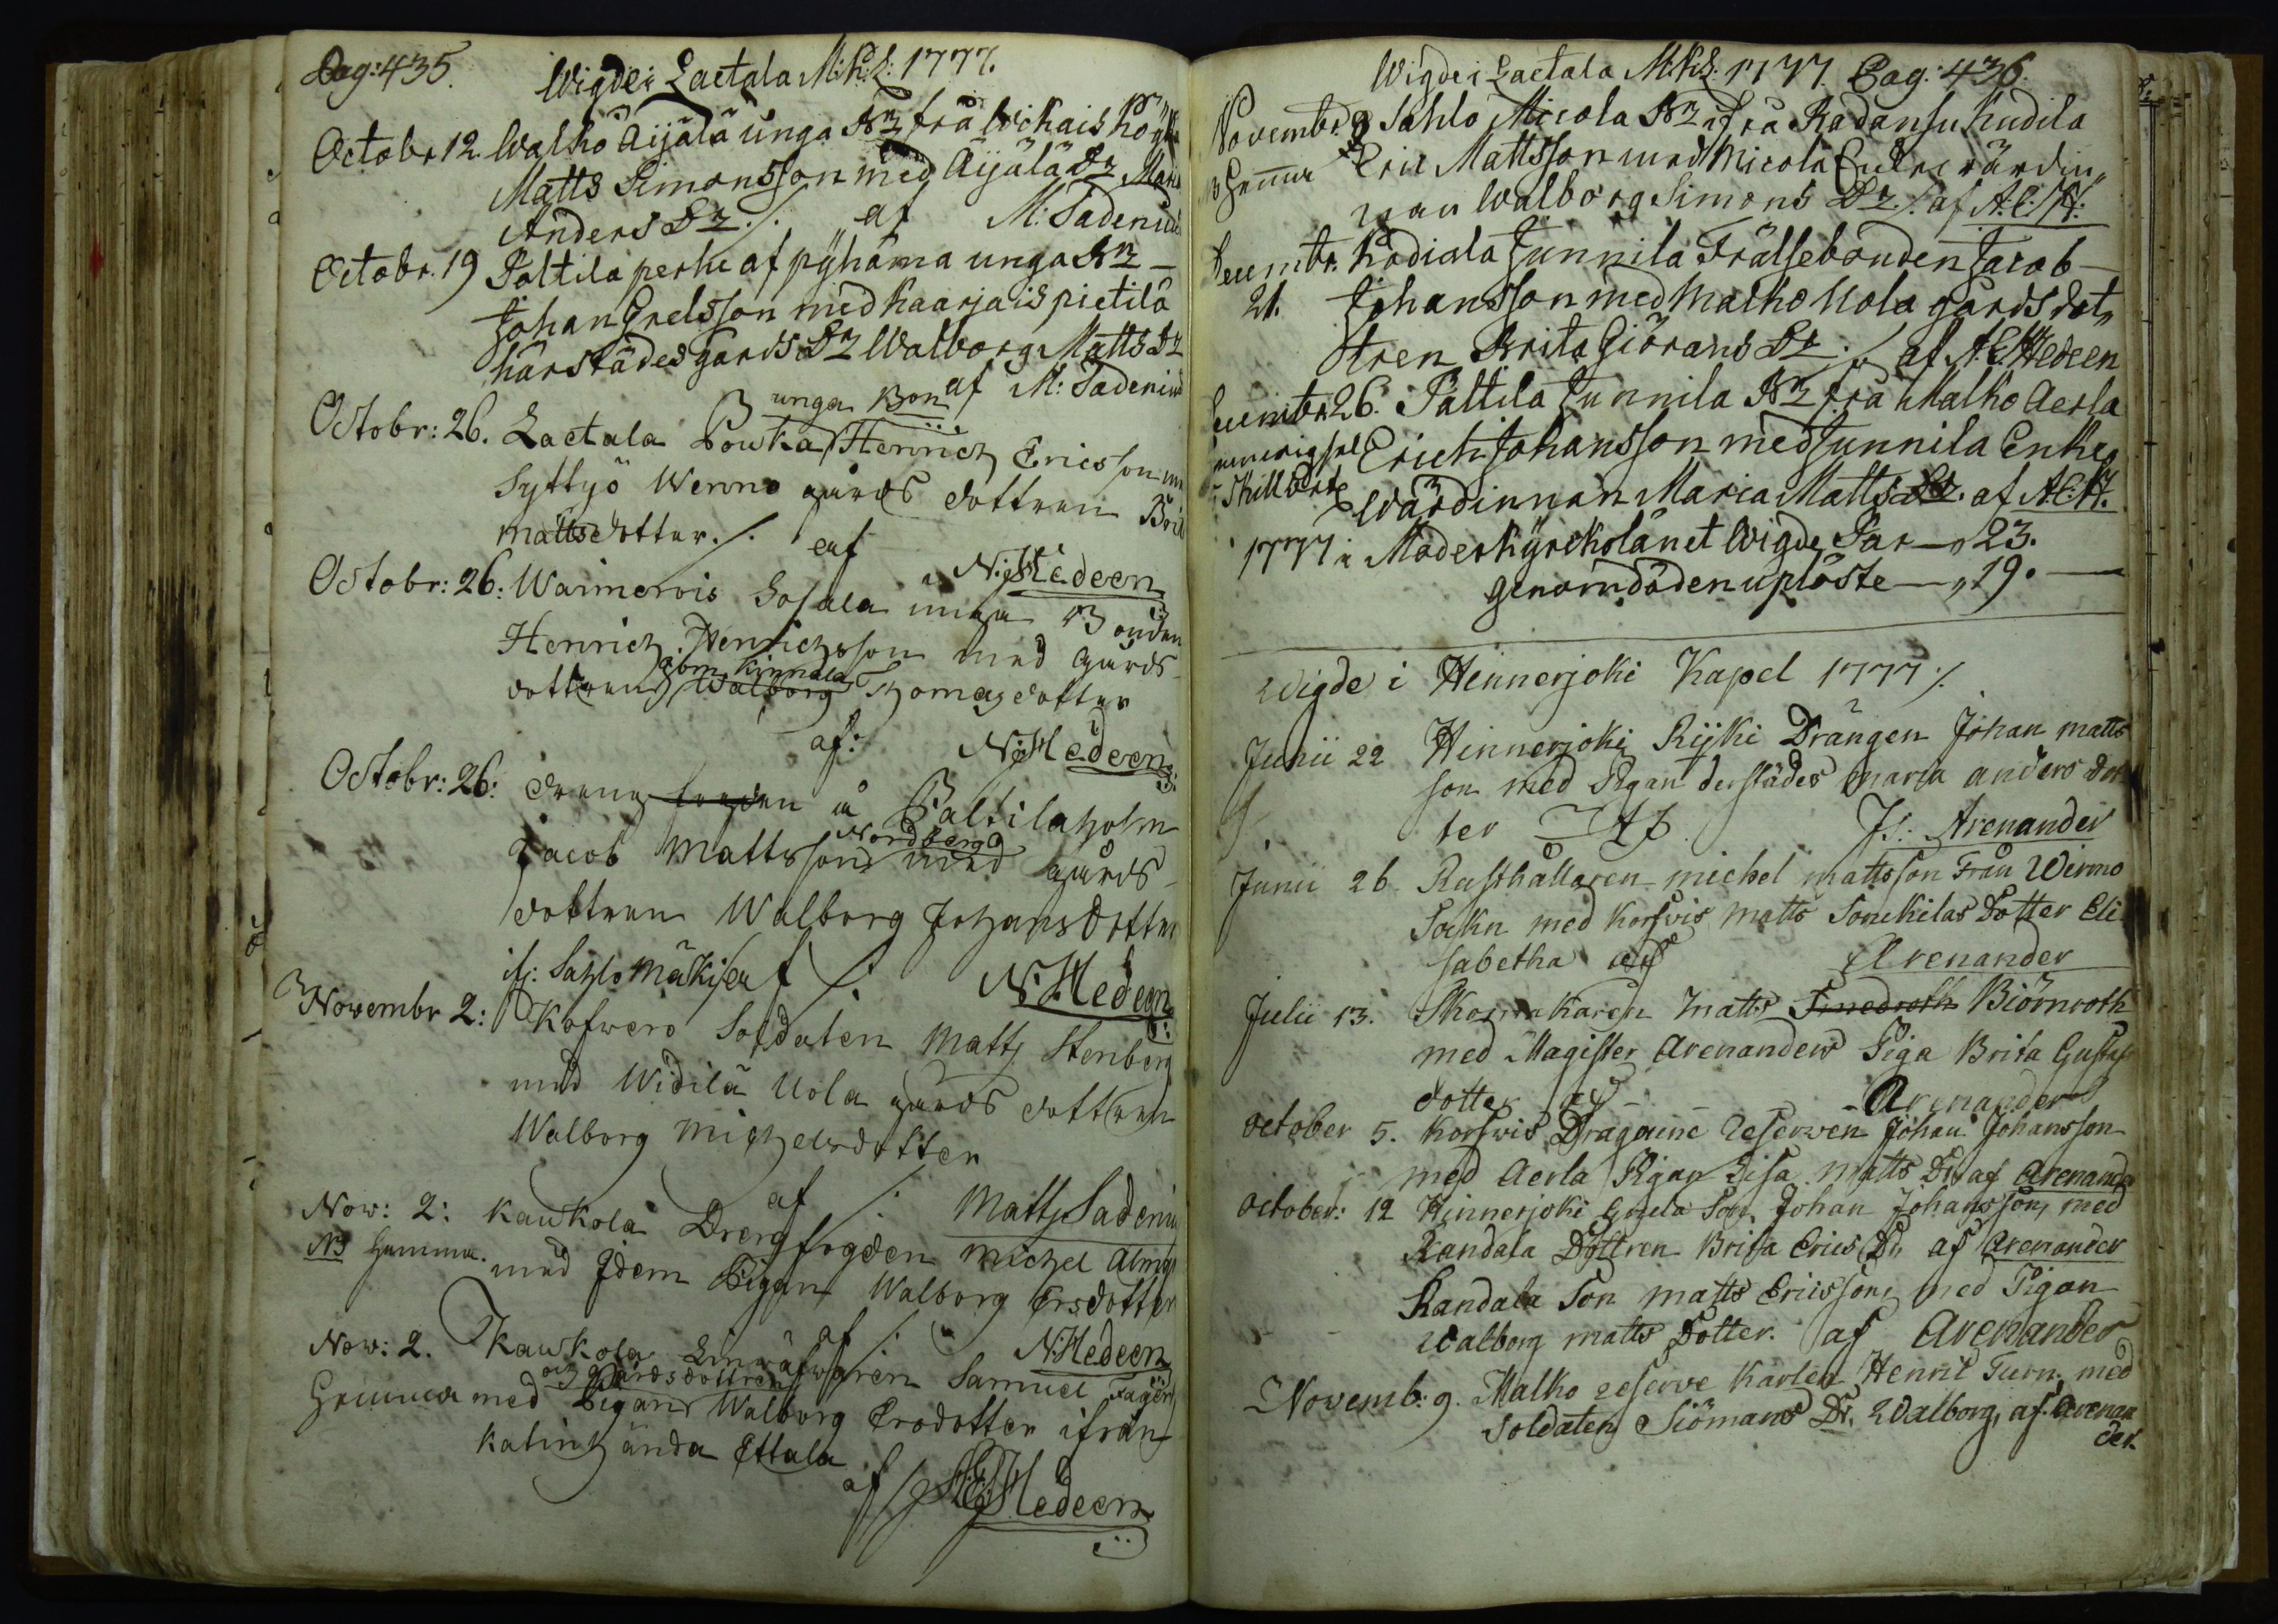 Pag: 435. Wigde i Laetala M:K:L: 1777.
Octobr 12. Walko Äijälä unga Bn frå Wihais
Matts Simonsson med Äijälä Dr Maria
Anders Dr ./. af M: Sadenius
Octobr. 19 Paltila perhe af pyhäma unga Bn
Johan Grelsson med Kaarjais pietilä
härstädes gårds Dr Walborg Matts Dr
af M: Sadenius
unga Bon
Octobr: 26. Laetala Pouka Henrich Ericsson
Syttyö Wenno gårds dottren
mattsdotter ./. af
N: Hedeen
Octobr: 26: Waimervis unga Bonden
Henrich Henrichsson med gårds
dottren Walborg Thomasdotter
af: N: Hedeen
Octobr: 26: å Paltilaholm
Nordberg
Jacob Mattsson med gårds
dottren Walborg Johansdotter
if: Sahlo Mäki af ./. N: Hedeen
Novembr 2: Kofwero Soldaten Matts Stenberg
med Widilä Uola gårds dottren
Walborg Michelsdotter
af ./. Matts Sadenius
Nov: 2: Kaukola Drengfogden Michel
NB Hemma. med Idem Pigan Walborg Ersdotter
af ./. N: Hedeen
Nov: 2. Kaukola Linwäfwaren Samuel Fager
och Gårdsdottren
Hemma med Pigan Walborg Ersdotter ifrån
Katinhända Ettala
af A: E: Hedeen
Wigde i Laetala M:K:L: 1777 Pag: 436.
Novembr. 9 Sahlo Micola Bn ifrå Radansu Kudila
Hemma Eric Mattsson med Micola Enkevärdin„
nan Walborg Simons Dr ./. af A: E: H:
Decembr. Kodiala Junnila Frälsebonden Jacob
21. Johansson med Malko Uola gårdsdot„
tren Brita Giörans Dr ./. af A: E: Hedeen
Decembr 26. Paltila Junnila Bn frå Malko Aerla
Erich Johansson med Junnila Enke„
wärdinnan Maria Matts Dr. af A: E: H.
1777 i Moderkyrckolänet Wigde Par — „ 23.
genom döden uplöste — „ 19. —
Wigde i Hennerjoki Kapel 1777 ./.
Junii 22 Hinnerjoki Rijki Drängen Johan matts
son med Pigan derstädes maria anders dot
ter Af J: Arenander
Junii 26 Rusthållaren michel mattsson Från Wirmo
Sockn med Korfvis matts Sonekilas Dotter Eli
sabetha af Arenander
Julii 13. Skomakaren Matts Smedroth Biörnroth
med Magister Arenanders Piga Brita Gustaf
dotter af Arenander
October 5. Korfvis Dragoune Reserven Johan Johansson
med Aerla Pigan Lisa Matts Dr. af Arenander
October: 12 Hinnerjoki Gnula Son Johan Johansson, med
Randala Dottren Brita Erics Dr. af Arenander
Randala Son matts Ericsson, med Pigan
Walborg matts Dotter. af Arenander
Novemb: 9. Malko reserve Karlen Henric Turn. med
Soldaten Siömans Dr. Walborg, af. Arenan
der.